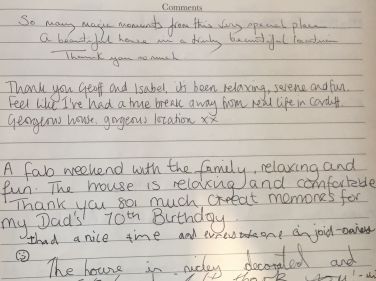 Comments
So many magic moments from this very special place
a beautiful house in a truly beautiful location
Thank you so much
Thank you Geoff and Isabel, its been relaxing, serene and fun.
Feel like I've had a true break away from real life in Cardiff.
Gorgeous house, gorgeous location xx
A fab weekend with the family, relaxing and
fun. The house is relaxing and comfortable
Thank you soi much Great memories for
my Dad's 70th Birthday.
thad a nice time and
The house is nicley decorated and